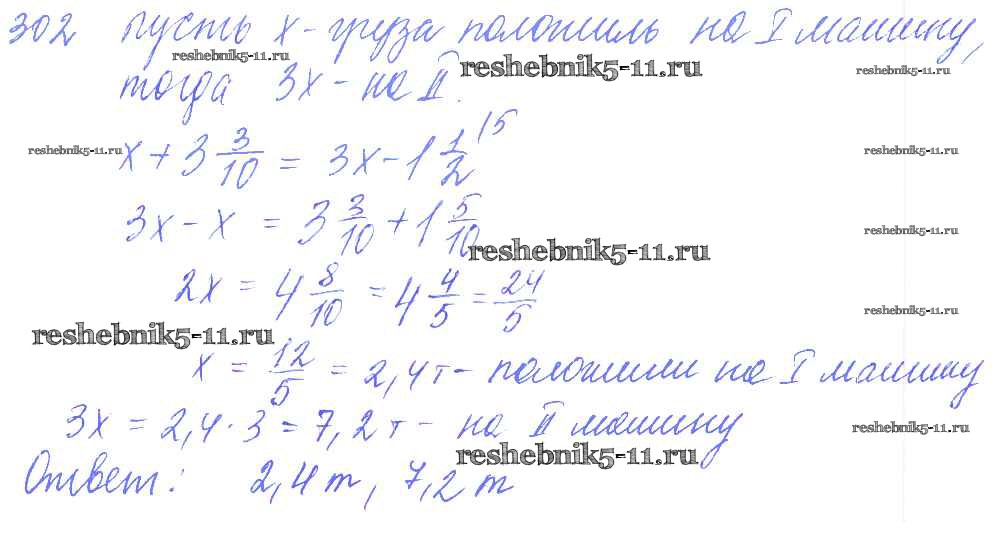 302 Пусть x - груза положиль на I машину,
reshebnik5-11.ru
reshebnik5-11.ru
reshebnik5-11.ru
тогда 3x - на II.
reshebnik5-11.ru
x + 3 3/10 = 3x - 1 1/2 (5
reshebnik5-11.ru
3x - x = 3 3/10 + 1 5/10
reshebnik5-11.ru
reshebnik5-11.ru
2x = 4 8/10 = 4 4/5 = 24/5
reshebnik5-11.ru
reshebnik5-11.ru
x = 12/5 = 2,4т - положили на I машину
3x = 2,4 · 3 = 7,2т - на II машину
reshebnik5-11.ru
reshebnik5-11.ru
Ответ: 2,4 т, 7,2 т